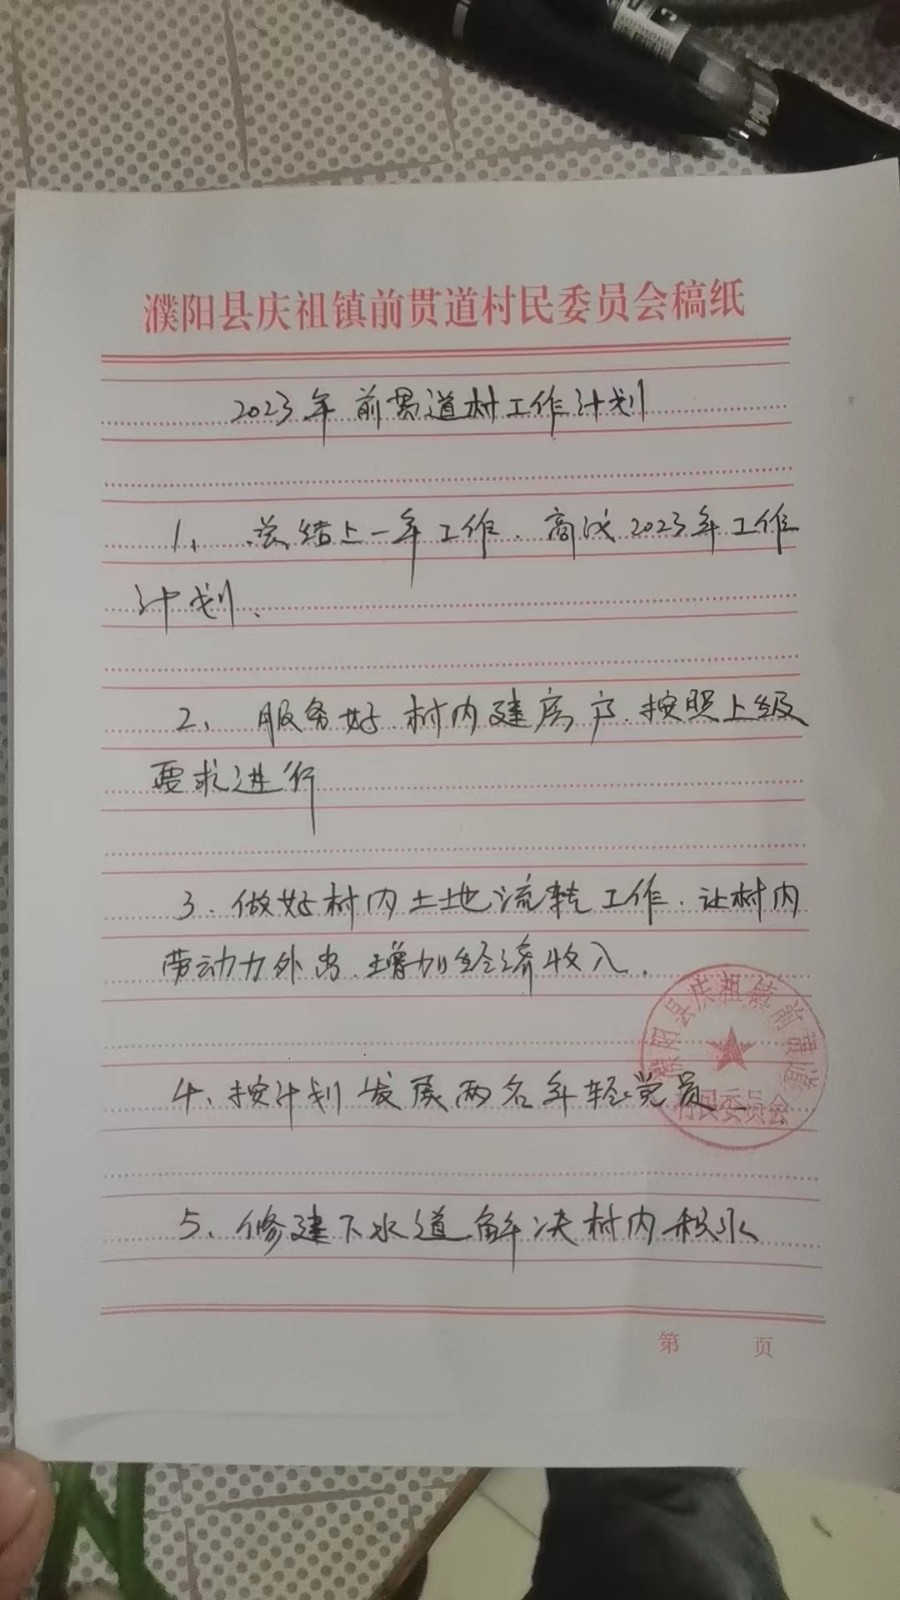 濮阳县庆祖镇前贯道村民委员会稿纸
2023年前贯道村工作计划
1、总结上一年工作、商议2023年工作
计划、
2、服务好村内建房户、按照上级
要求进行
3、做好村内土地流转工作、让村内
劳动力外出、增加经济收入.
4、按计划发展两名年轻党员
濮阳县庆祖镇前贯道
村民委员会
5、修建下水道解决村内积水
第 页